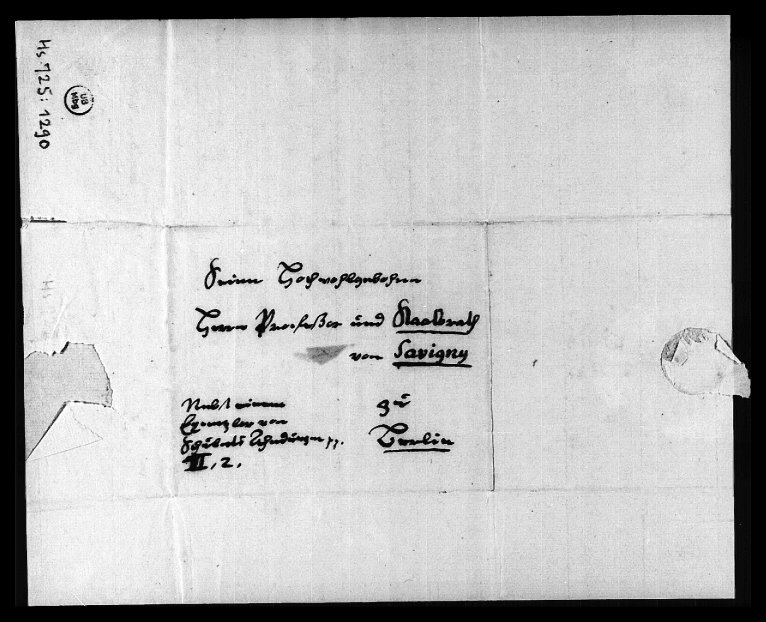 Hs. 725: 1290
UB
Mbg
Seiner Hochwohlgebohren
Herrn Professor und Staatsrath
von Savigny
zu
Berlin
Nebst einem
Exemplar von
pp.
III, 2.